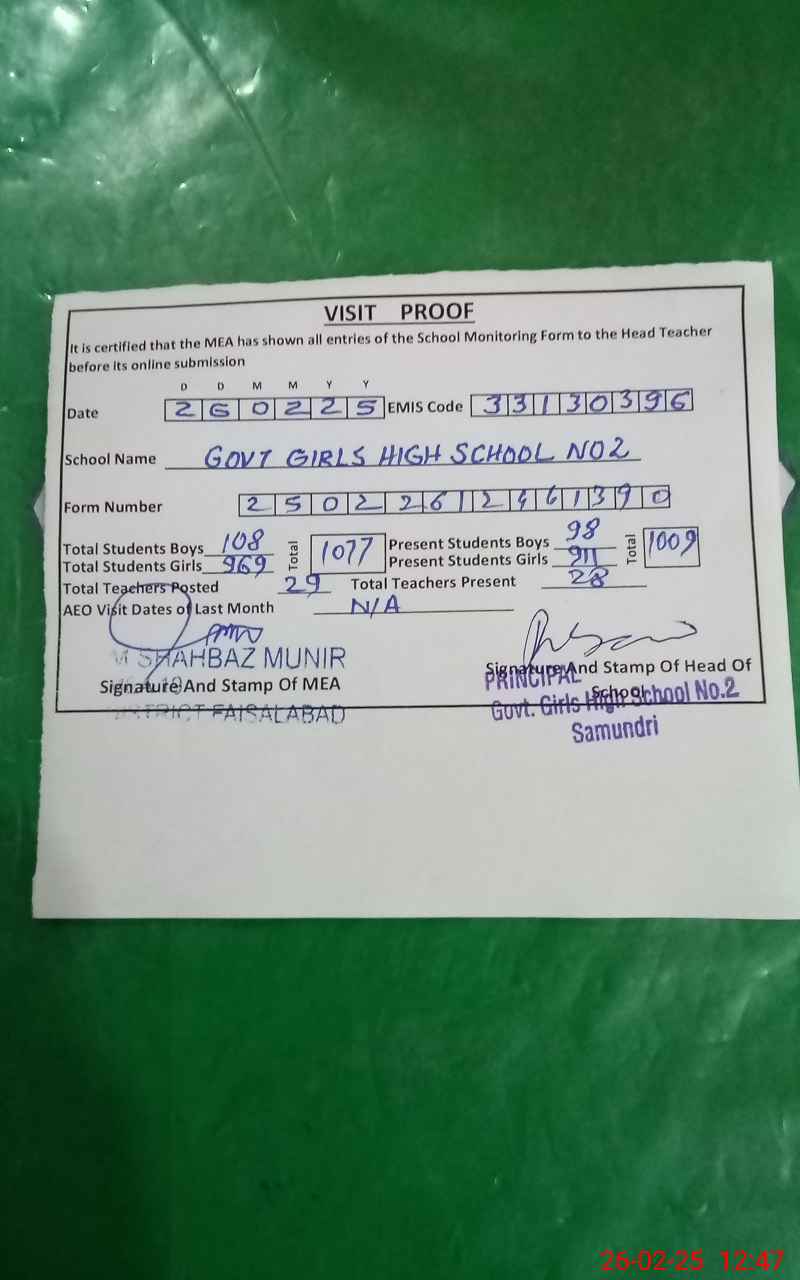 VISIT PROOF
It is certified that the MEA has shown all entries of the School Monitoring Form to the Head Teacher
before its online submission
D D M M Y Y
Date 260225 EMIS Code 33130396
School Name GOVT GIRLS HIGH SCHOOL NO2
Form Number 25022612461390
Total Students Boys 108 Total 1077 Present Students Boys 98 Total 1009
Total Students Girls 969 Present Students Girls 911
Total Teachers Posted 29 Total Teachers Present 28
AEO Visit Dates of Last Month N/A
M SHAHBAZ MUNIR
Signature And Stamp Of MEA
DISTRICT FAISALABAD
Signature And Stamp Of Head Of
School
PRINCIPAL
Govt. Girls High School No.2
Samundri
26-02-25 12:47